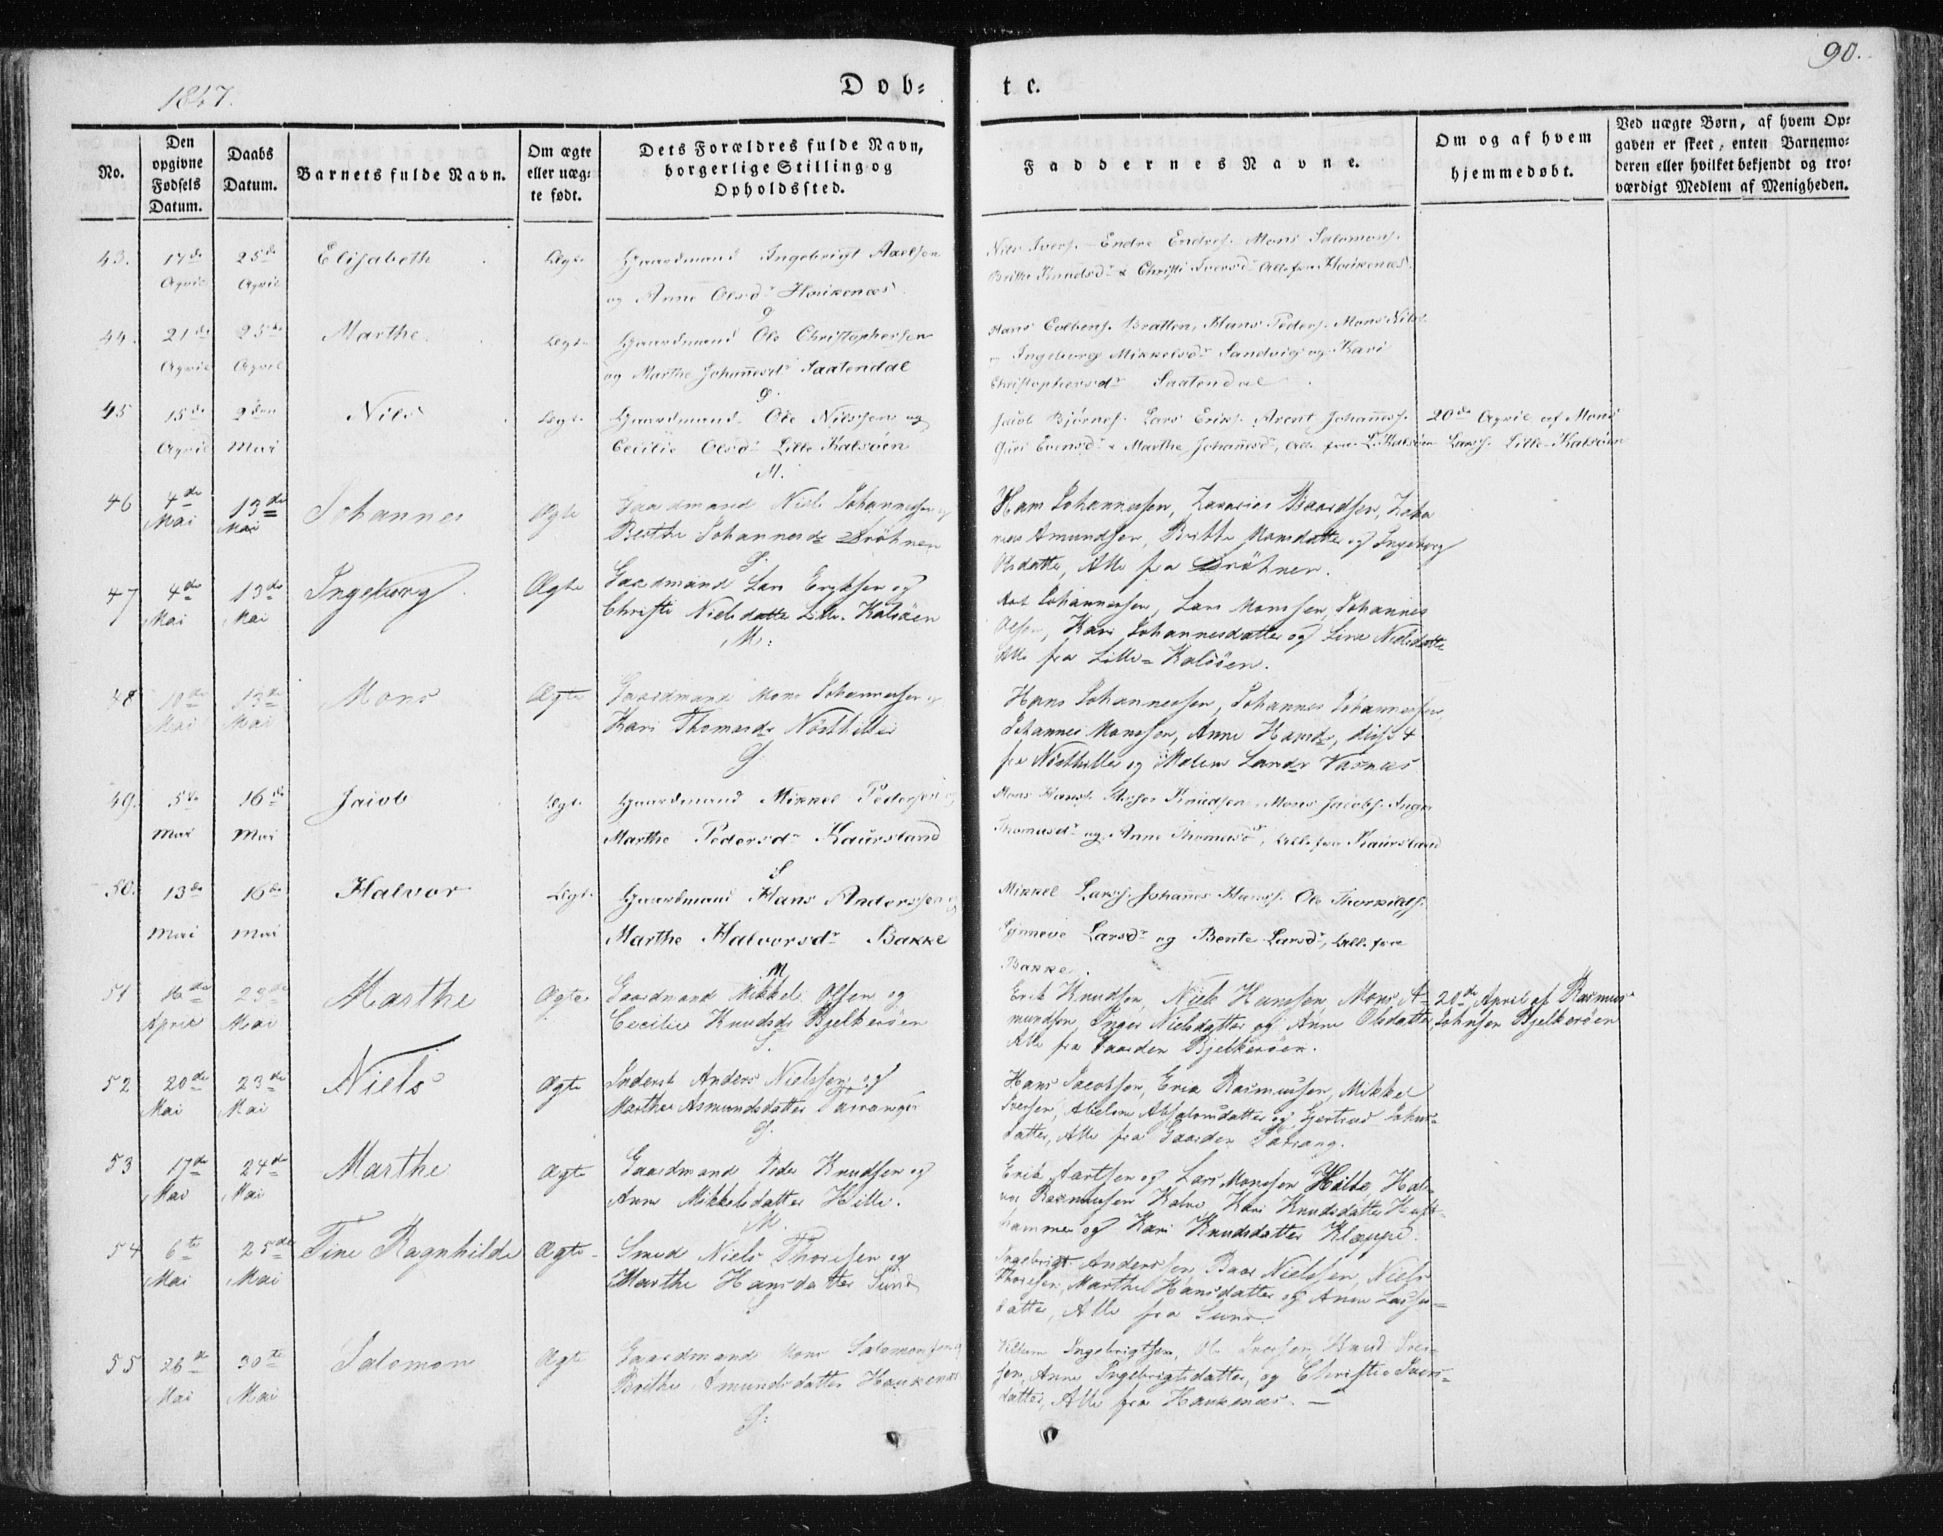 1847.
Dob-
te.
90.
No.
Den opgivne Fødsels Datum.
Daabs Datum.
Barnets fulde Navn.
Om ægte eller uægte født.
Dets Forældres fulde Navn, borgerlige Stilling og Opholdssted.
Faddernes Navne.
Om og af hvem hjemmedøbt.
Ved uægte Børn, af hvem Opgaven er skeet, enten Barnemoderen eller hvilket bekjendt og troværdigt Medlem af Menigheden.
43. 17de April 25de April Elisabeth Ægte Gaardmand Ingebrigt Axelsen
og Anne Olsdr Haukenæs
Nils Ivers. Endre Endres. Mons Salomons.
Britte Knudsdr & Christi Iversdr Alle fra Haukenæs.
44. 21de April 25de April Marthe Ægte Gaardmand Ole Christophersen
og Marthe Johannesdr Saatendal
Hans Bratten, Hans Peders. Mons Nils.
Ingeborg Mikkelsdr Sandvig og Kari
Christophersdr Saatendal
45 15de April 2den Mai Nils Ægte Gaardmand Ole Nilssen og
Cecilie Olsdr Lille Kalsøen
M.
Jacob Bjørnes. Lars Eriks. Arent Johannes.
Guri Evensdr & Marthe Johannesdr, Alle fra L. Kalsøen
20de April af Mons
Larss. Lille-Kalsøen
46 4de Mai 13de Mai Johannes Ægte Gaardmand Niels Johannessen og
Berthe Johannesdr Drøhnen
Hans Johannessen, Zacarias Baardsen, Johannes Amundsen, Britte Monsdatter og Ingeborg
Olsdatter, Alle fra Drøhnen.
47 4de Mai 13de Mai Ingeborg Ægte Gaardmand Lars Eriksen og
Christi Nielsdatter Lille Kalsøen
M:
Johannessen, Lars Monssen, Johannes
Olsen, Kari Johannesdatter og Line Nielsdatter
Alle fra Lille-Kalsøen.
48 10de Mai 13de Mai Mons Ægte Gaardmand Mons Johannessen og
Kari Thomasdr
Hans Johannessen, Johannes Johannessen
Johannes Monssen, Anne Hansdr, disse 4
fra og Malene Larsdr
49. 5te Mai 16de Mai Jacob Ægte Gaardmand Mikkel Pedersen
Marthe Pedersdr Kaursland
Mons Hanss. Knudsen, Mons Jacobs. Inger
Thomasdr og Anne Thomasdr, Alle fra Kaursland
50. 13de Mai 16de Mai Halvor Ægte Gaardmand Hans Anderssen og
Marthe Halvorsdr Bakke
Mikkel Larss. Johannes Hanss. Ole Thorkilds.
Synneve Larsdr og Bente Larsdr, Alle fra
Bakke.
51 16de April 23de Mai Marthe Ægte Gaardmand Mikkel Olsen og
Cecilie Knudsdr Bjelkerøen
Erik Knudsen, Niels Hanssen, Mons Amundsen, Inger Nielsdatter og Anne Olsdatter
Alle fra Gaarden Bjelkerøen.
20de April af Rasmus
Johnsen Bjelkerøen
52 20de Mai 23de Mai Niels Ægte Inderst Anders Nielssen og
Marthe Asmundsdatter
Hans Jacobsen, Erik Rasmussen, Mikkel
Iversen, Abelone Absalonsdatter og Gjertrud Johnsdatter, Alle fra Gaarden
53 17de Mai 24de Mai Marthe Ægte Gaardmand Peder Knudsen og
Anne Mikkelsdatter Hille.
M.
Erik og Lars Monssen Hille, Halvor Rasmussen Kari Knudsdatter
og Kari Knudsdatter Kleppe.
54 6te Mai 25de Mai Tine Ragnhilde Ægte Smed Niels Thoresen og
Marthe Hansdatter Sund
Ingebrigt Anderssen, Baar Nielssen, Niels
Thoresen, Marthe Hansdatter og Anne
datter, Alle fra Sund.
55 26de Mai 30te Mai Salomon Ægte Gaardmand Mons Salomonsen og
Brithe Amundsdatter Haukenæs
Ingebrigtsen, Ole Iversen, Knud
Anne Ingebrigtsdatter, og Christie Iversdatter, Alle fra Haukenæs.